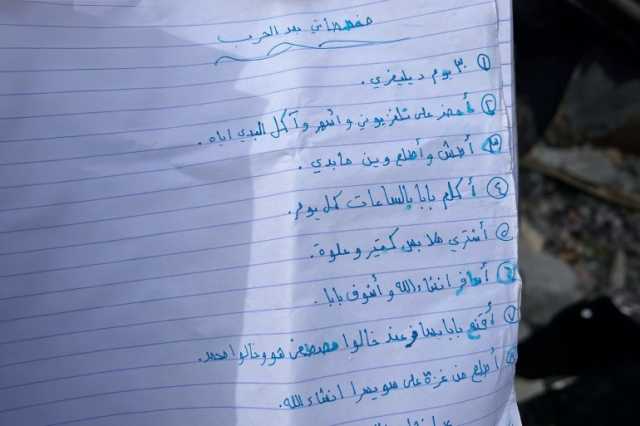 مخططاتي بعد الحرب
١ ٣٠ يوم ديليفري.
٢ أحضر على تلفزيوني واشهر وآكل البدي اياه.
٣ أطش وأطلع وين مابدي.
٤ أكلم بابا بالساعات كل يوم.
٥ أشتري ملابس كتير وحلوة.
٦ أسافر انشاءالله وأشوف بابا.
٧ أقنع بابا يسافر عند خالوا مصطفى هو وخالوا محمد.
٨ أطلع من غزة على سويسرا انشاءالله.